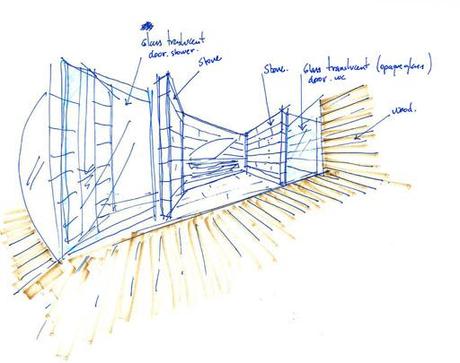 Glass translucent
door. shower.
Stone
Stone.
Glass translucent (opaque glass)
door. wc
wood.